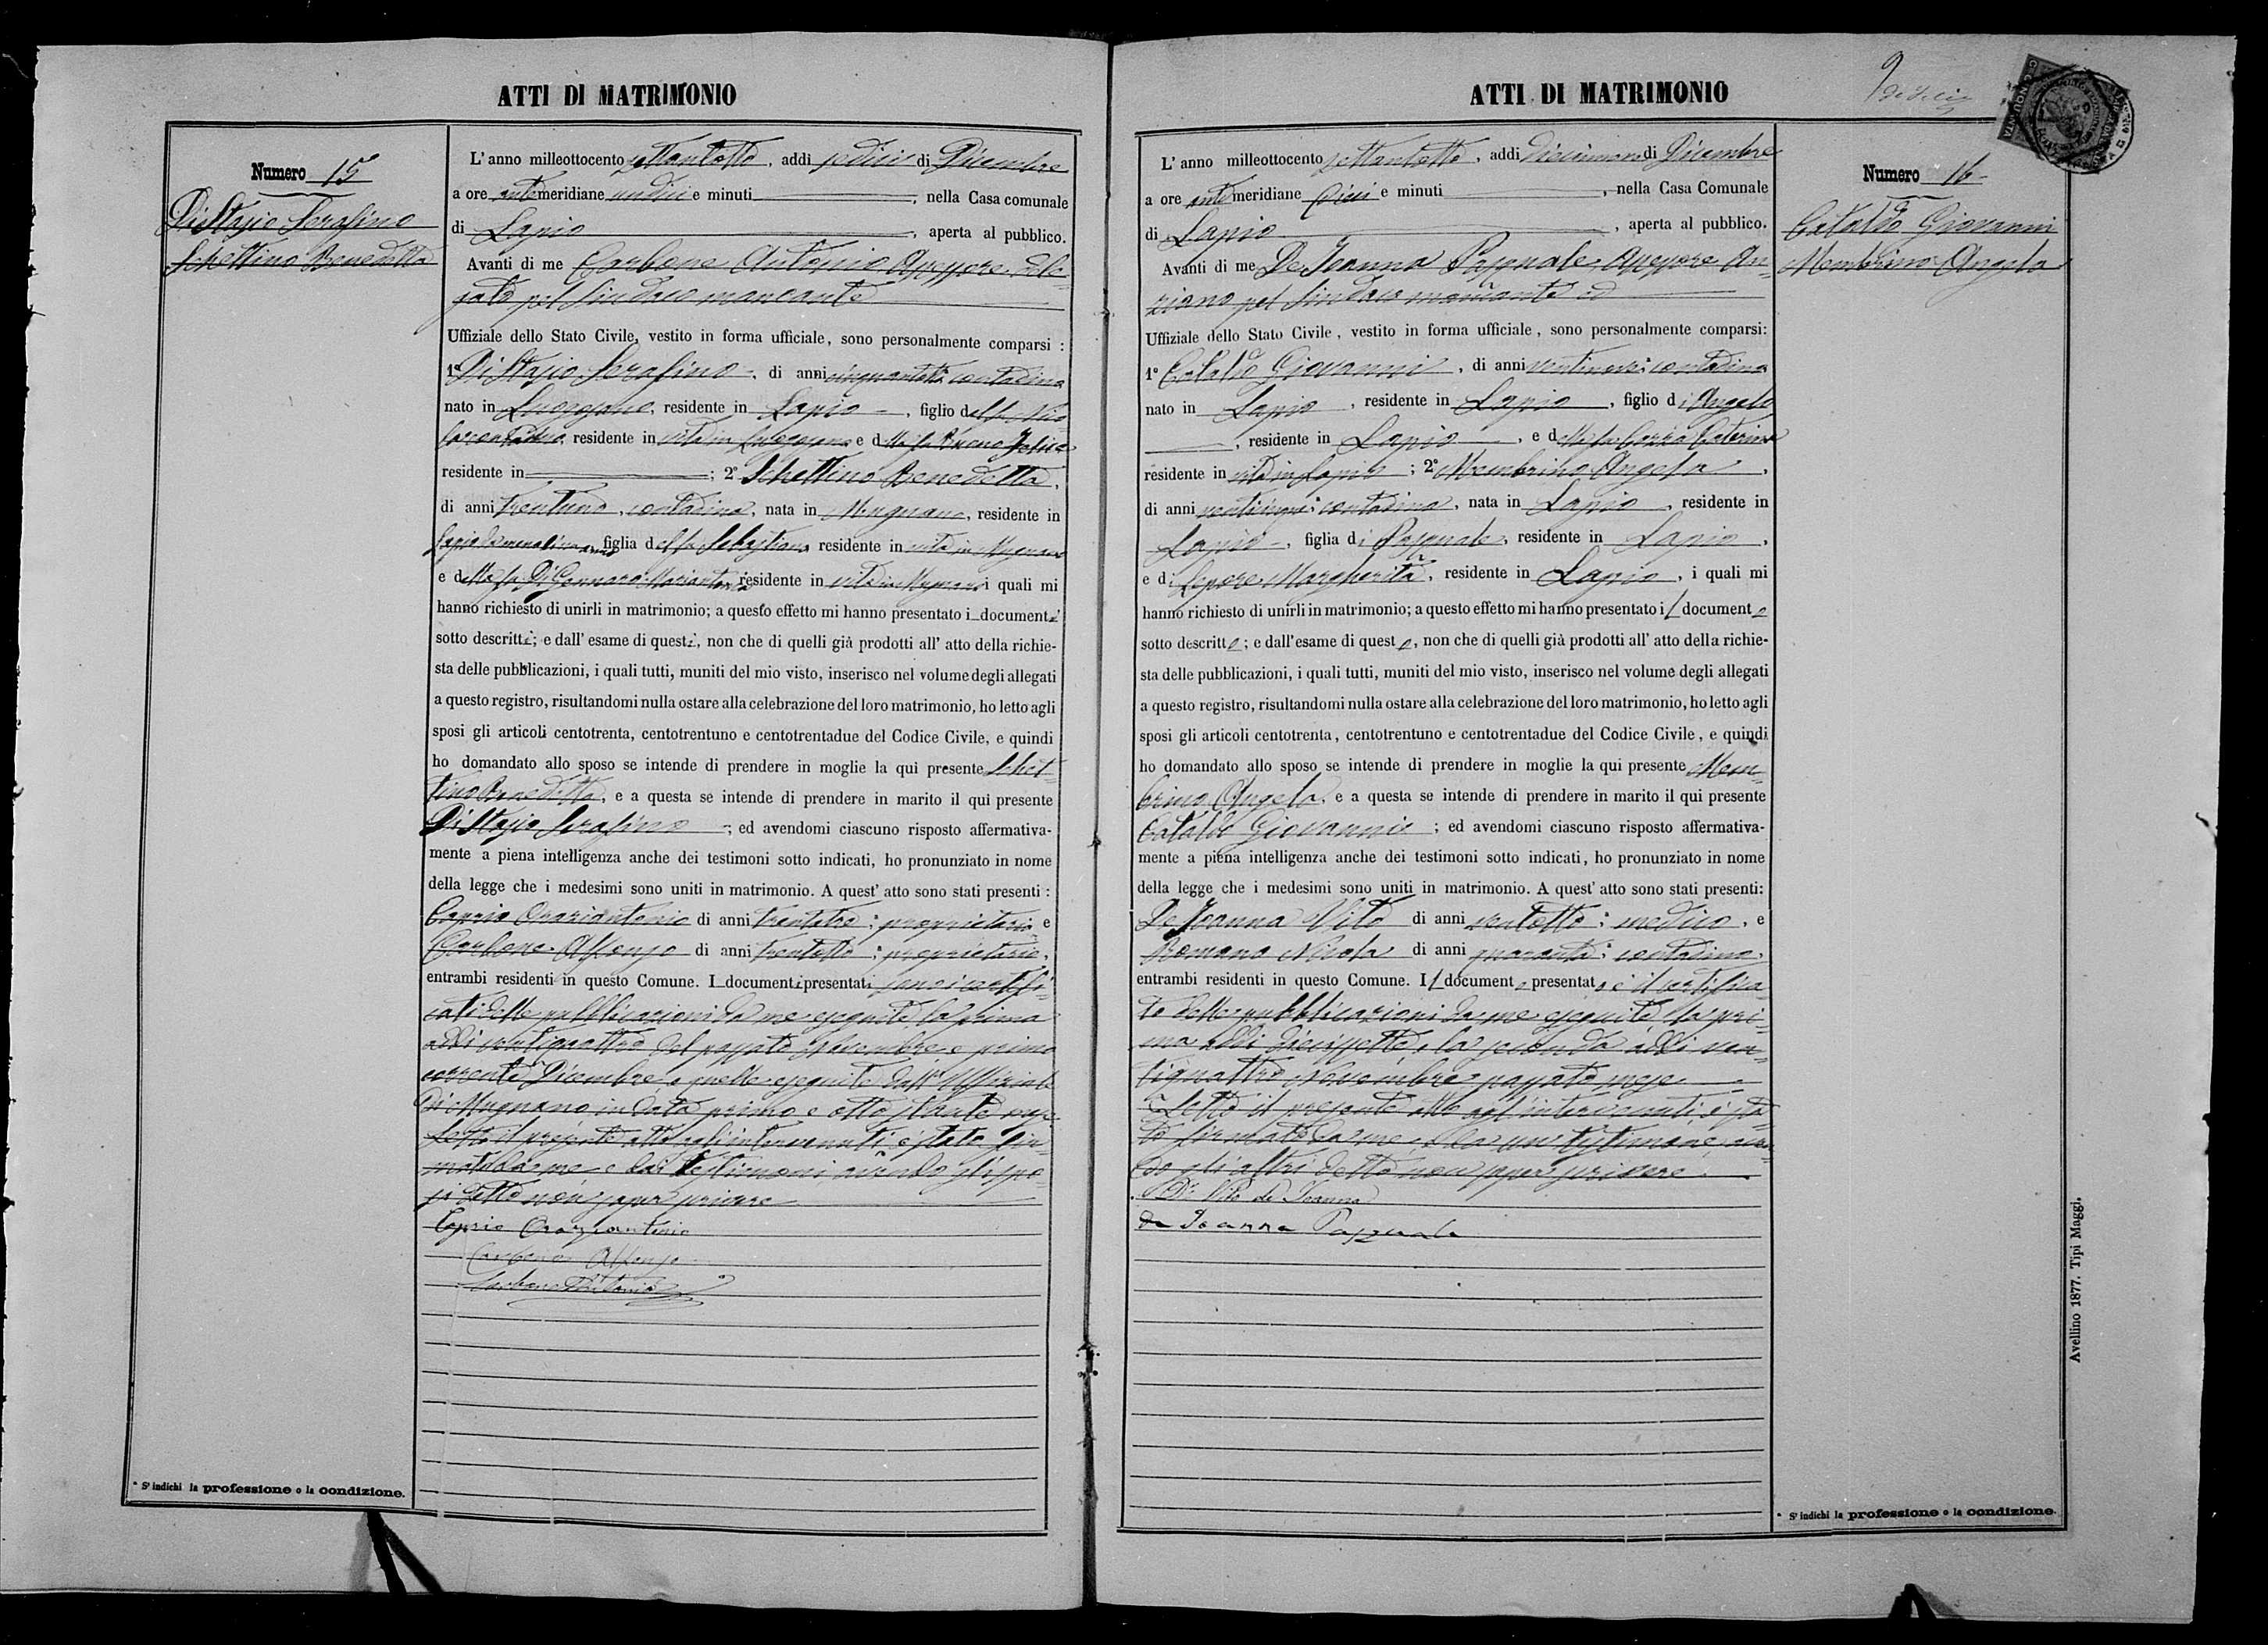 ATTI DI MATRIMONIO
Numero 15
Di Stasio Serafino
Schettino Benedetta
L' anno milleottocento settantotto, addi sedici di Dicembre
a ore antemeridiane undici e minuti, nella Casa comunale
di Lapio, aperta al pubblico.
Avanti di me Carbone Antonio Assessore dele-
gato pel Sindaco mancante
Uffiziale dello Stato Civile, vestito in forma ufficiale, sono personalmente comparsi:
1° Di Stasio Serafino, di anni cinquantotto contadino
nato in Luogosano, residente in Lapio, figlio del fu
residente in vita in Luogosano e della fu
residente in; 2° Schettino Benedetta,
di anni trentuno, contadina, nata in Mugnano, residente in
Lapio, figlia del fu Sebastiano residente in vita in Mugnano
e della fu Di Gennaro Mariantonia residente in vita in Mugnano i quali mi
hanno richiesto di unirli in matrimonio; a questo effetto mi hanno presentato i documenti
sotto descritti; e dall' esame di questi, non che di quelli già prodotti all' atto della richie-
sta delle pubblicazioni, i quali tutti, muniti del mio visto, inserisco nel volume degli allegati
a questo registro, risultandomi nulla ostare alla celebrazione del loro matrimonio, ho letto agli
sposi gli articoli centotrenta, centotrentuno e centotrentadue del Codice Civile, e quindi
ho domandato allo sposo se intende di prendere in moglie la qui presente Schet-
tino Benedetta, e a questa se intende di prendere in marito il qui presente
Di Stasio Serafino; ed avendomi ciascuno risposto affermativa-
mente a piena intelligenza anche dei testimoni sotto indicati, ho pronunziato in nome
della legge che i medesimi sono uniti in matrimonio. A quest' atto sono stati presenti:
Caprio Oraziantonio di anni trentatre; proprietario e
Carbone Alfonso di anni trentotto; proprietario,
entrambi residenti in questo Comune. I documenti presentati sono i certifi-
cati delle pubblicazioni da me eseguite la prima
addi ventiquattro del passato Novembre e primo
corrente Dicembre e quelle eseguite dall' Uffiziale
di Mugnano in data primo e otto stante mese
Letto il presente atto agli intervenuti è stato fir-
mato da me e dai testimoni avendo gli spo-
si detto non saper scrivere
Caprio Oraziantonio
Carbone Alfonso
Carbone Antonio
* S' indichi la professione o la condizione.
ATTI DI MATRIMONIO
Numero 16
Cataldo Giovanni
Membrino Angela
L' anno milleottocento settantotto, addi diciannove di Dicembre
a ore antemeridiane dieci e minuti, nella Casa Comunale
di Lapio, aperta al pubblico.
Avanti di me De Joanna Pasquale, Assessore An-
ziano pel Sindaco mancante ed
Uffiziale dello Stato Civile, vestito in forma ufficiale, sono personalmente comparsi:
1° Cataldo Giovanni, di anni contadino
nato in Lapio, residente in Lapio, figlio di Angelo
, residente in Lapio, e della fu Caterina
residente in vita in Lapio; 2° Membrino Angela,
di anni contadina, nata in Lapio, residente in
Lapio, figlia di Pasquale, residente in Lapio,
e di Lepore Margherita, residente in Lapio, i quali mi
hanno richiesto di unirli in matrimonio; a questo effetto mi hanno presentato il documento
sotto descritto; e dall' esame di questo, non che di quelli già prodotti all' atto della richie-
sta delle pubblicazioni, i quali tutti, muniti del mio visto, inserisco nel volume degli allegati
a questo registro, risultandomi nulla ostare alla celebrazione del loro matrimonio, ho letto agli
sposi gli articoli centotrenta, centotrentuno e centotrentadue del Codice Civile, e quindi
ho domandato allo sposo se intende di prendere in moglie la qui presente Mem-
brino Angela, e a questa se intende di prendere in marito il qui presente
Cataldo Giovanni; ed avendomi ciascuno risposto affermativa-
mente a piena intelligenza anche dei testimoni sotto indicati, ho pronunziato in nome
della legge che i medesimi sono uniti in matrimonio. A quest' atto sono stati presenti:
De Joanna Vito di anni ventotto; medico, e
Romano Nicola di anni quaranta; contadino,
entrambi residenti in questo Comune. Il documento presentato è il certifica-
to delle pubblicazioni da me eseguite la pri-
ma addi diciassette, la seconda addi ven-
tiquattro Novembre passato mese
Letto il presente atto agl' intervenuti, è sta-
to firmato da me, e da un testimone, aven-
do gli altri detto non saper scrivere.
Dr. Vito de Joanna
de Joanna Pasquale
* S' indichi la professione o la condizione.
Avellino 1877. Tipi Maggi.